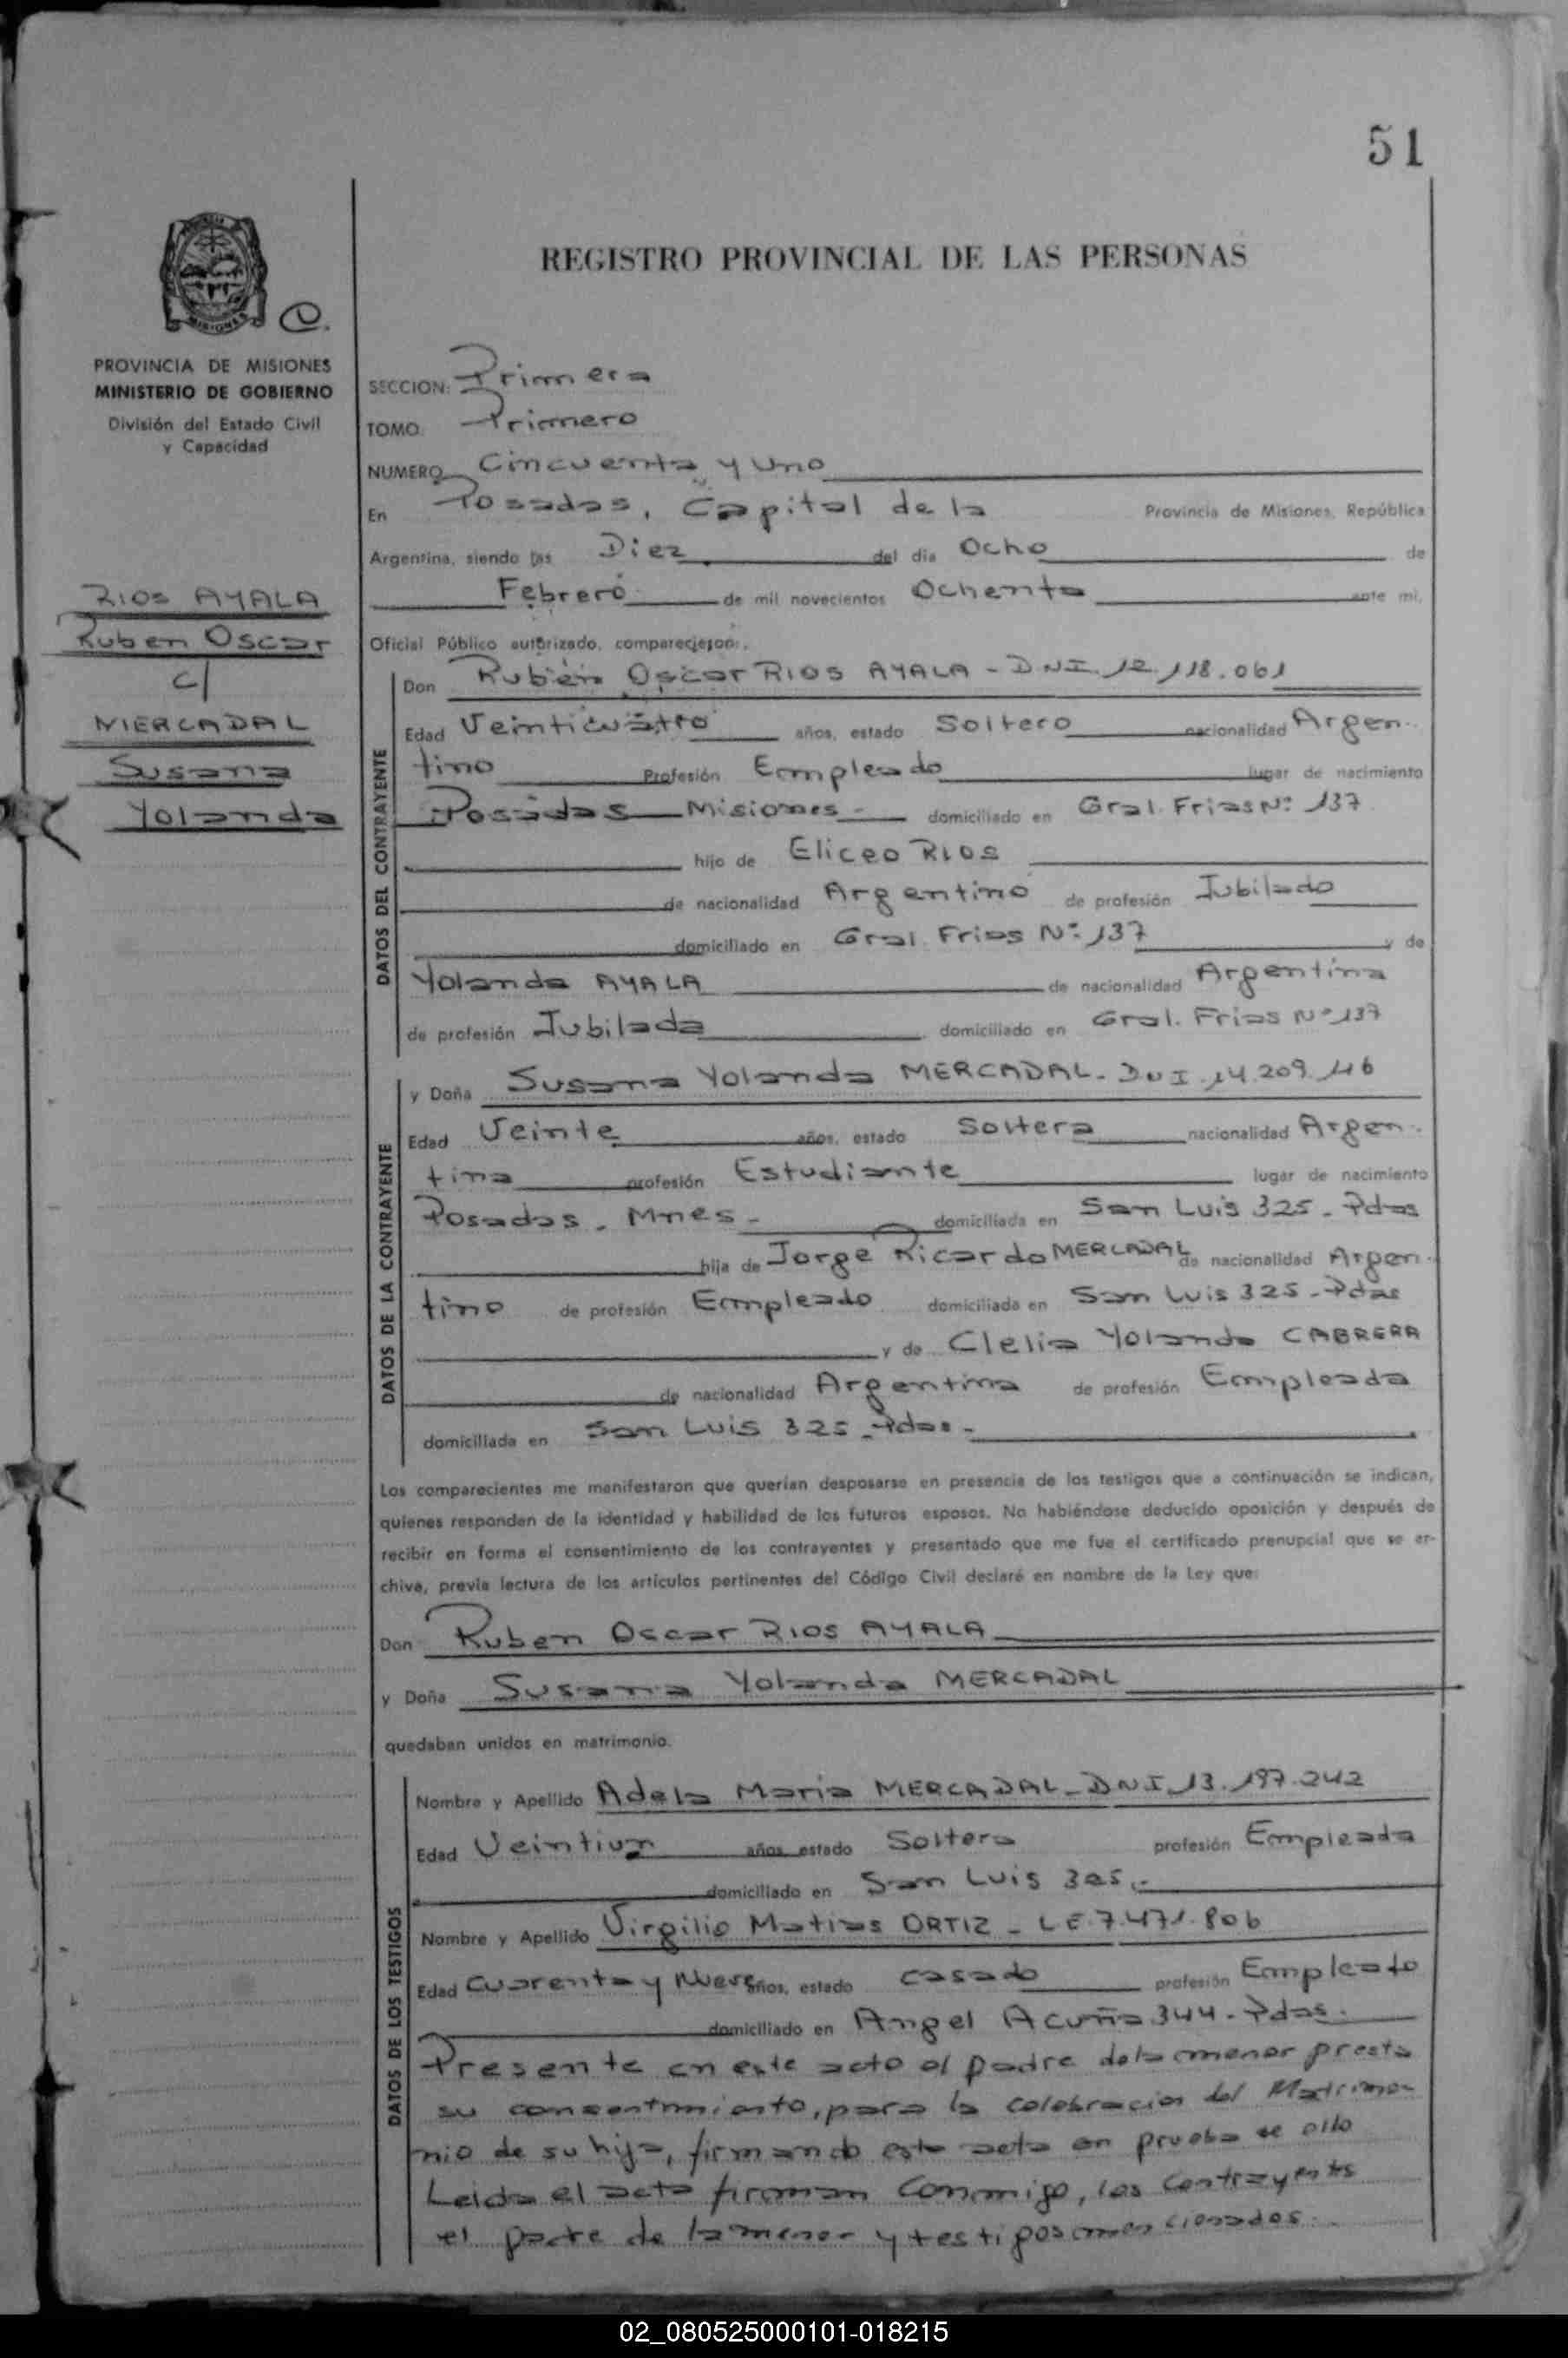 51
REGISTRO PROVINCIAL DE LAS PERSONAS
PROVINCIA DE MISIONES
MINISTERIO DE GOBIERNO
División del Estado Civil
y Capacidad
RIOS AYALA
Ruben Oscar
c/
MERCADAL
Susana
Yolanda
SECCION: Primera
TOMO Primero
NUMERO Cincuenta y uno
En Posadas, Capital de la Provincia de Misiones, República
Argentina, siendo las Diez del día Ocho de
Febrero de mil novecientos Ochenta ante mí,
Oficial Público autorizado, comparecieron:
DATOS DEL CONTRAYENTE
Don Rubén Oscar RIOS AYALA - DNI 12.118.061
Edad Veinticuatro años, estado Soltero nacionalidad Argen-
tino Profesión Empleado lugar de nacimiento
Posadas Misiones - domiciliado en Gral. Frias Nº 137
hijo de Eliceo RIOS
de nacionalidad Argentino de profesión Jubilado
domiciliado en Gral. Frias Nº 137 y de
Yolanda AYALA de nacionalidad Argentina
de profesión Jubilada domiciliado en Gral. Frias Nº 137
DATOS DE LA CONTRAYENTE
y Doña Susana Yolanda MERCADAL - DNI 14.209.
Edad Veinte años, estado Soltera nacionalidad Argen-
tina profesión Estudiante lugar de nacimiento
Posadas - Mnes - domiciliada en San Luis 325 - Pdas
hija de Jorge Ricardo MERCADAL de nacionalidad Argen-
tino de profesión Empleado domiciliada en San Luis 325 - Pdas
y de Clelia Yolanda CABRERA
de nacionalidad Argentina de profesión Empleada
domiciliada en San Luis 325 - Pdas -
Los comparecientes me manifestaron que querían desposarse en presencia de los testigos que a continuación se indican,
quienes responden de la identidad y habilidad de los futuros esposos. No habiéndose deducido oposición y después de
recibir en forma el consentimiento de los contrayentes y presentado que me fue el certificado prenupcial que se ar-
chiva, previa lectura de los artículos pertinentes del Código Civil declaré en nombre de la Ley que:
Don Ruben Oscar RIOS AYALA
y Doña Susana Yolanda MERCADAL
quedaban unidos en matrimonio.
DATOS DE LOS TESTIGOS
Nombre y Apellido Adela Maria MERCADAL - DNI 13.197.242
Edad Veintiun años estado Soltera profesión Empleada
domiciliado en San Luis 325.-
Nombre y Apellido Virgilio Matias ORTIZ - LE 7.471.806
Edad Cuarenta y Nueve años, estado casado profesión Empleado
domiciliado en Angel Acuña 344 - Pdas.
Presente en este acto el padre de la menor presta
su consentimiento, para la celebracion del Matrimo-
nio de su hija, firmando esta acta en prueba de ello
Leida el acta firman conmigo, los contrayentes
el padre de la menor y testigos mencionados.
02_080525000101-018215